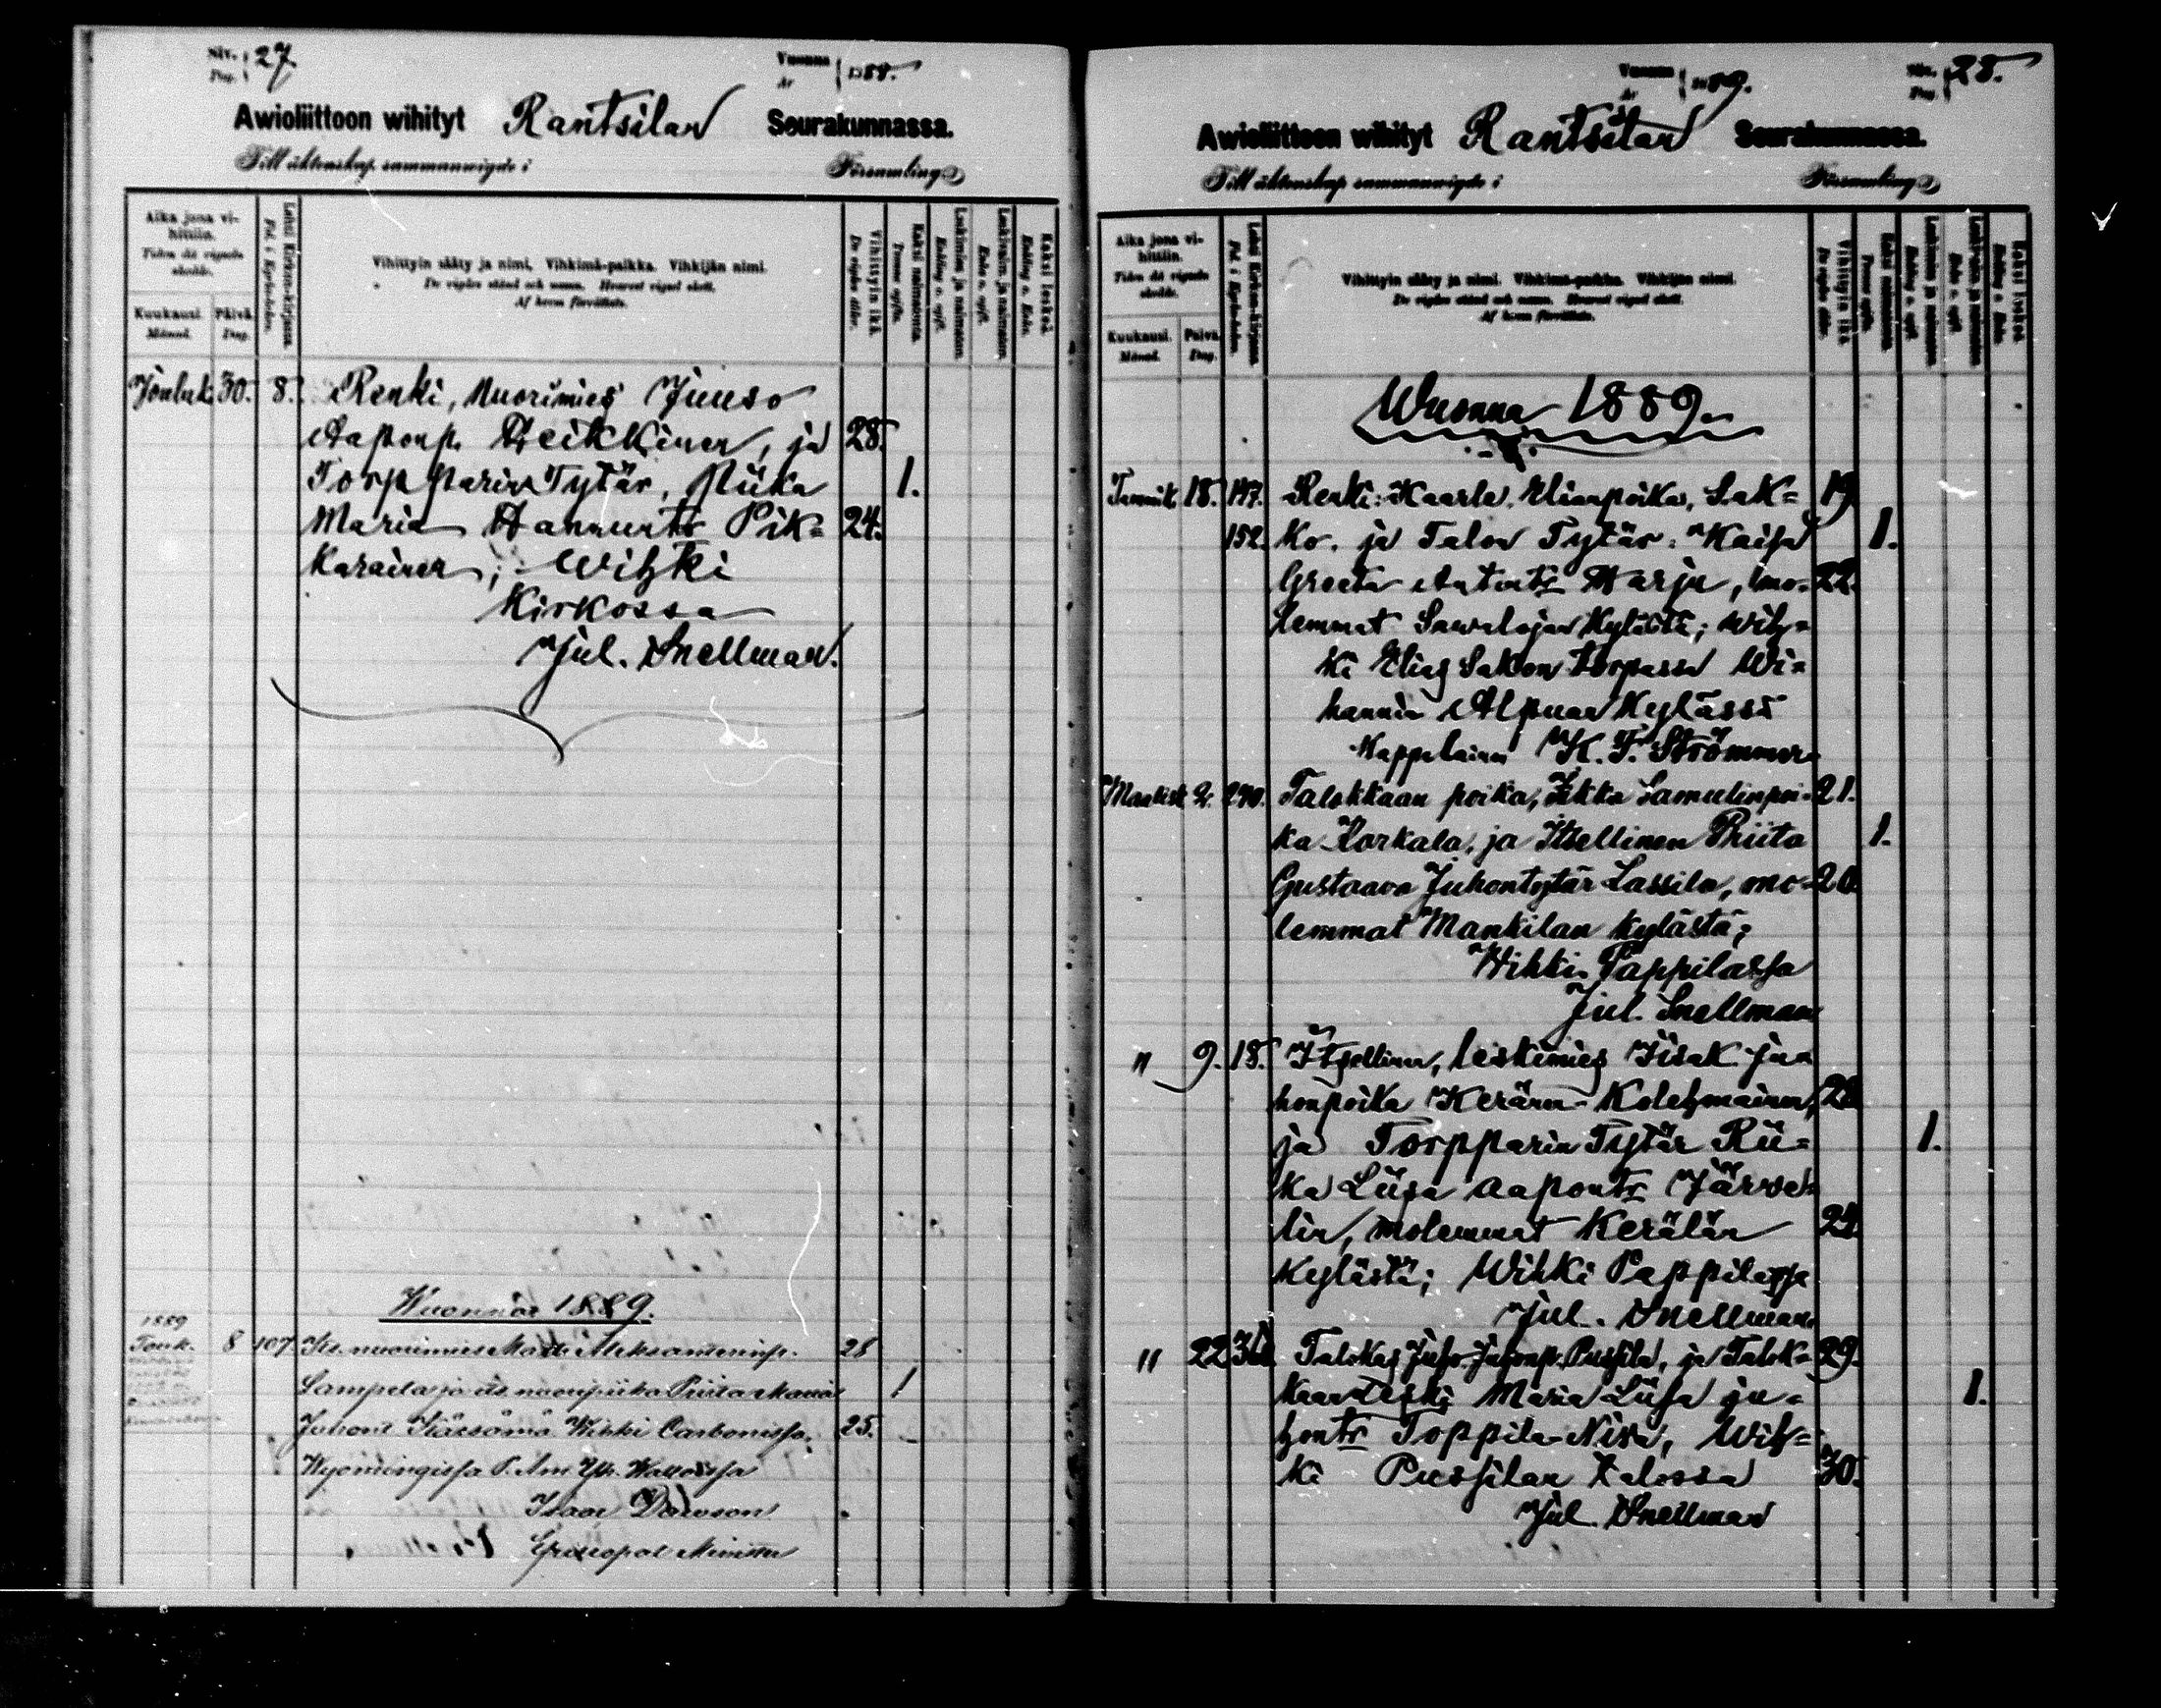 Siv. 27.
Pag.
Vuonna 1888.
År
Awioliittoon wihityt Rantsilan Seurakunnassa.
Till äktenskap sammanwigde i Församling
Aika jona vihittiin.
Tiden då vigseln skedde.
Kuukausi. Päivä.
Månad. Dag.
Lehti Kirkon-kirjassa
Fol. i Kyrko-boken.
Vihittyin sääty ja nimi. Vihkimä-paikka. Vihkijän nimi.
De vigdes stånd och namn. Hvarest vigsel skett.
Af hvem förrättats.
Vihittyin ikä.
De vigdes ålder.
Kaksi naimatonta.
Tvenne ogifta.
Leskimies ja naimaton.
Enkling o. ogift.
Leskivaim. ja naimaton.
Enka o. ogift.
Kaksi leskeä.
Enkling o. Enka.
Jouluk. 30. 8. Renki, Nuorimies Juuso
Aaponp. Heikkinen, ja 28.
Torpparin Tytär, Riika 1.
Maria Hannunts Pik= 24.
karainen; Wihki
Kirkossa
Jul. Snellman.
Wuonna 1889.
1889
Touk. 8 107. Its. nuorimies Matti Aleksanterinp. 28
Lampela ja its. nuoripiika Priita Maria 1
Juhont. Kärsämä Wihki Carbonissa, 25.
Wyomingissa P. Am. Yh. Walloissa
Isaac Dawson
Episcopal Minister
Siv. 28.
Pag.
Vuonna 1889.
År
Awioliittoon wihityt Rantsilan Seurakunnassa.
Till äktenskap sammanwigde i Församling
Aika jona vihittiin.
Tiden då vigseln skedde.
Kuukausi. Päivä.
Månad. Dag.
Lehti Kirkon-kirjassa
Fol. i Kyrko-boken.
Vihittyin sääty ja nimi. Vihkimä-paikka. Vihkijän nimi.
De vigdes stånd och namn. Hvarest vigsel skett.
Af hvem förrättats.
Vihittyin ikä
De vigdes ålder.
Kaksi naimatonta.
Tvenne ogifta.
Leskimies ja naimaton.
Enkling o. ogift.
Leskivaim. ja naimaton.
Enka o. ogift.
Kaksi leskeä.
Enkling o. Enka.
Wuonna 1889.
Tammik. 18. 147. Renki: Kaarle Elianpoika, Sak= 19
152. ko. ja Talon Tytär: Kaisa 1.
Greeta Antints Harju, mo= 22.
lemmat Sawalojan Kylästä; Wih=
ki Elias Sakon torpassa Wi=
hannin Alpuan Kylässä
Kappalainen K. F. Strömmer
Maalisk. 2. 240. Talokkaan poika, Iikka Samulinpoi= 21.
ka Korkala, ja Itsellinen Priita 1.
Gustaava Juhontytär Lassila, mo= 20
lemmat Mankilan kylästä;
Wihki Pappilassa
Jul. Snellman
" 9. 15. Itsellinen, leskimies Iisak Ju=
honpoika Keränen-Kolehmainen, 28
ja Torpparin Tytär Rii= 1.
ka Liisa Aaponts Järwe=
lin, molemmat Kerälän 24.
Kylästä; Wihki Pappilassa
Jul. Snellman
" 22 Talokas Juho Juhonp. Pussila, ja Talok= 29.
kaan leski Maria Liisa Ju= 1.
honts Toppila-Niva, Wih=
ki Pussilan talossa 30.
Jul. Snellman